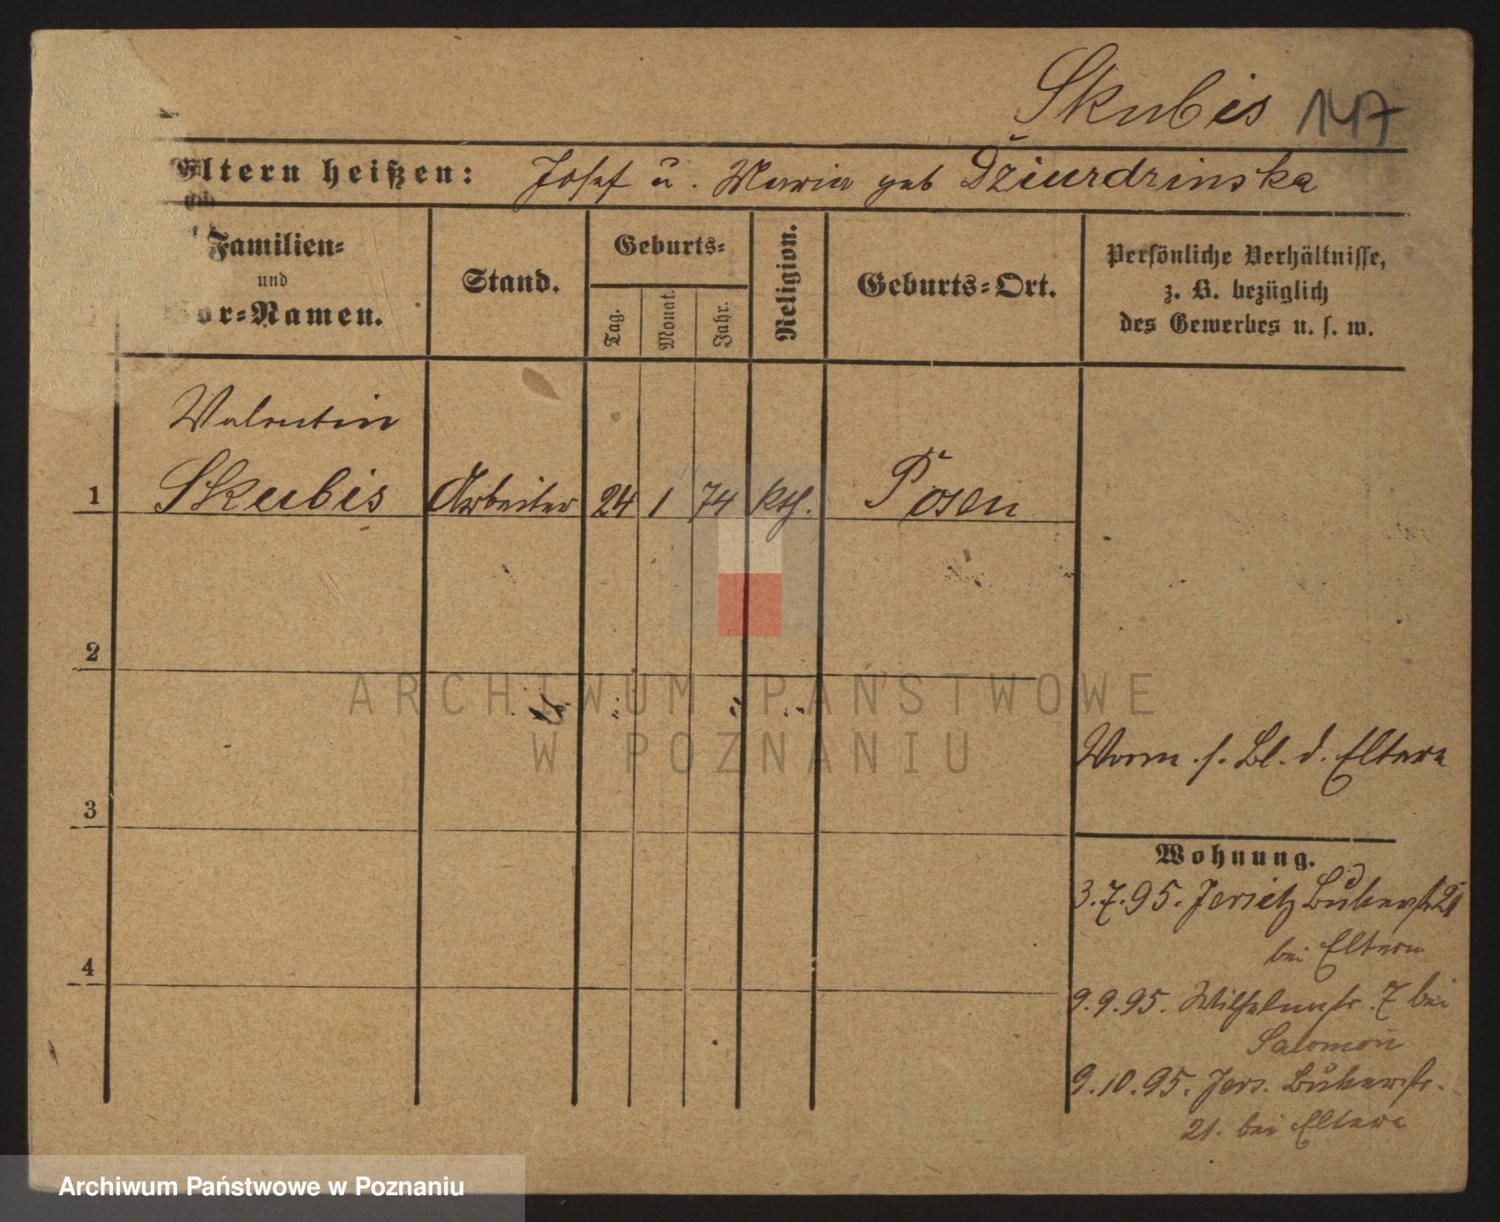 Skubis 147
Eltern heißen: Josef u. Maria geb Džiurdzinska
Familien=
und
Vor=Namen.
Stand.
Geburts=
Tag.
Monat.
Jahr.
Religion.
Geburts=Ort.
Persönliche Verhältnisse,
z. B. bezüglich
des Gewerbes u. s. w.
Valentin
1 Skubis Arbeiter 24 1 74 kth. Posen
2
3
4
Vorm. s. Bl. d. Eltern
Wohnung.
3.7.95. Jersitz Bukerstr 21
bei Eltern
9.9.95. Wilhelmstr. 7 bei
Salomon
9.10.95. Jers. Bukerstr.
21. bei Eltern
ARCHIWUM PAŃSTWOWE
W POZNANIU
Archiwum Państwowe w Poznaniu